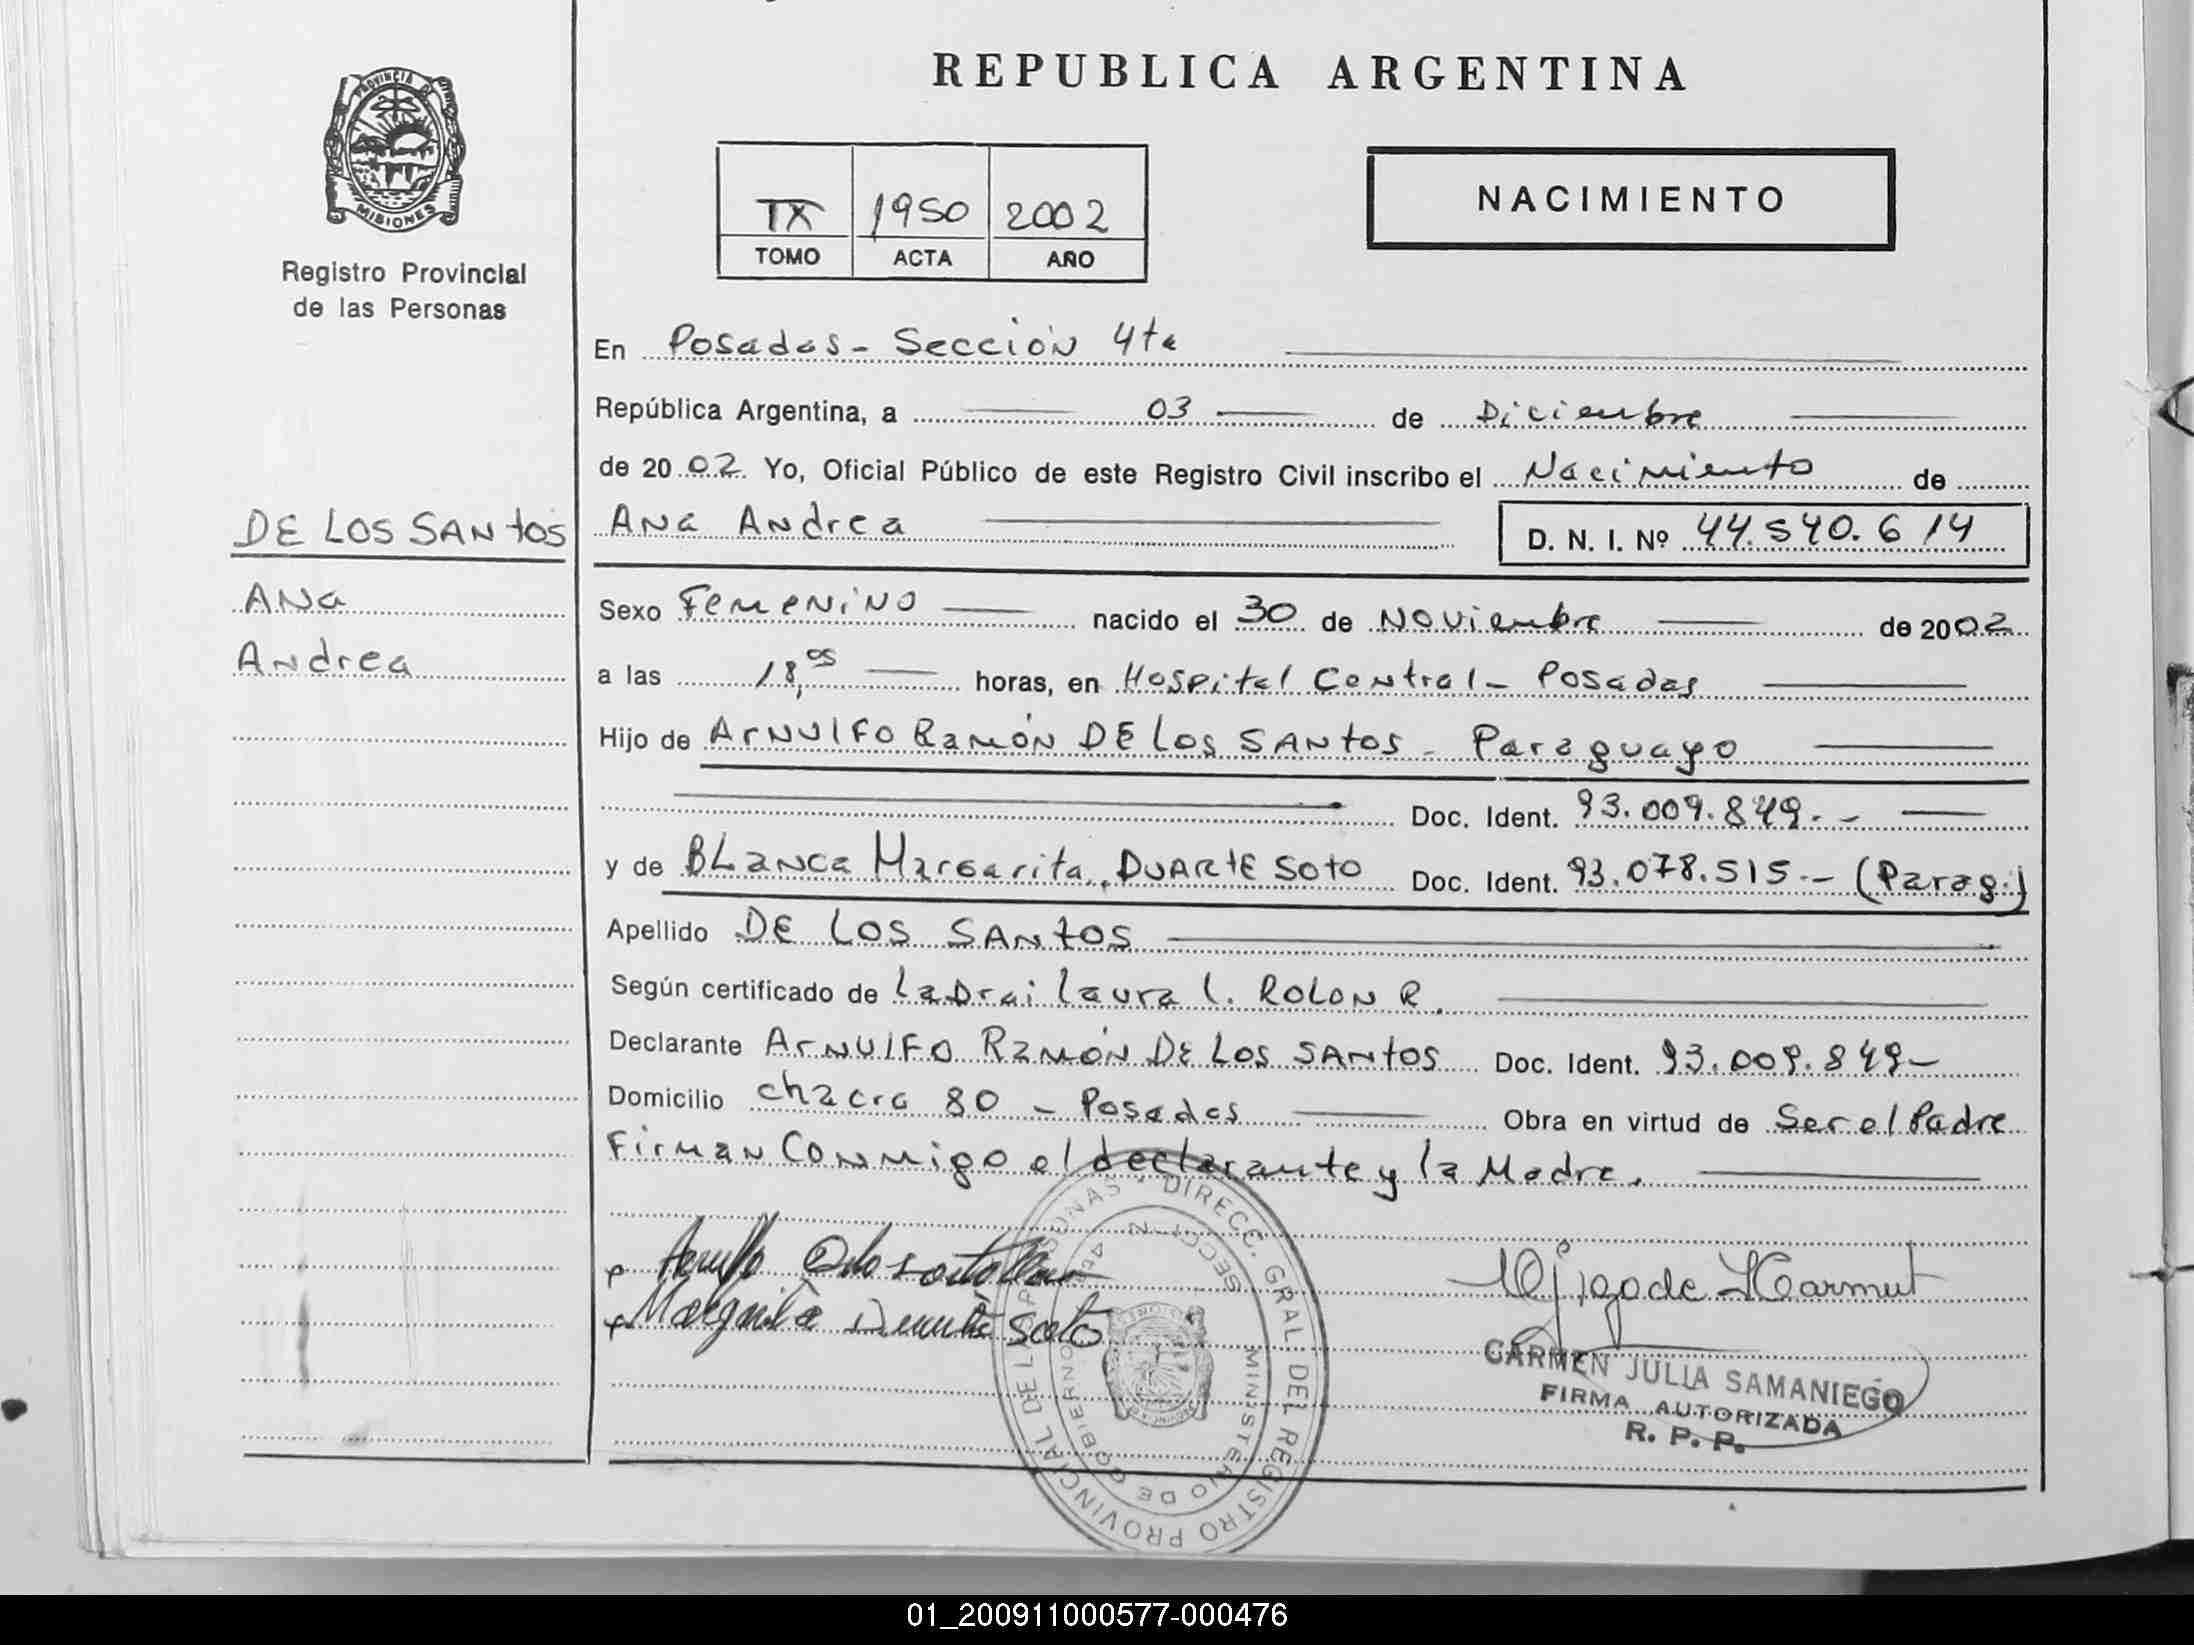 REPUBLICA ARGENTINA
PROVINCIA DE MISIONES
Registro Provincial
de las Personas
IX 1950 2002
TOMO ACTA AÑO
NACIMIENTO
En Posadas - Sección 4ta
República Argentina, a 03 de Diciembre
de 2002 Yo, Oficial Público de este Registro Civil inscribo el Nacimiento de
DE LOS SANtOS
ANa
Andrea
ANa Andrea D. N. I. Nº 44.540.614
Sexo Femenino nacido el 30 de Noviembre de 2002
a las 18,05 horas, en Hospital Central - Posadas
Hijo de Arnulfo Ramón DE Los SANtos - Paraguayo
Doc. Ident. 93.009.849.-
y de BLanca Margarita DUARtE Soto Doc. Ident. 93.078.515.- (Parag.)
Apellido DE LOS SANtOS
Según certificado de La Dra; Laura L. ROLON R.
Declarante Arnulfo Ramón De Los SANtOS Doc. Ident. 93.009.849-
Domicilio Chacra 80 - Posadas Obra en virtud de Ser el Padre
Firman Conmigo el declarante y la Madre.
Margarita Duarte Soto
CARMEN JULIA SAMANIEGO
FIRMA AUTORIZADA
R. P. P.
DIRECC. GRAL. DEL REGISTRO PROVINCIAL DE LAS PERSONAS
MINISTERIO DE GOBIERNO
01_200911000577-000476